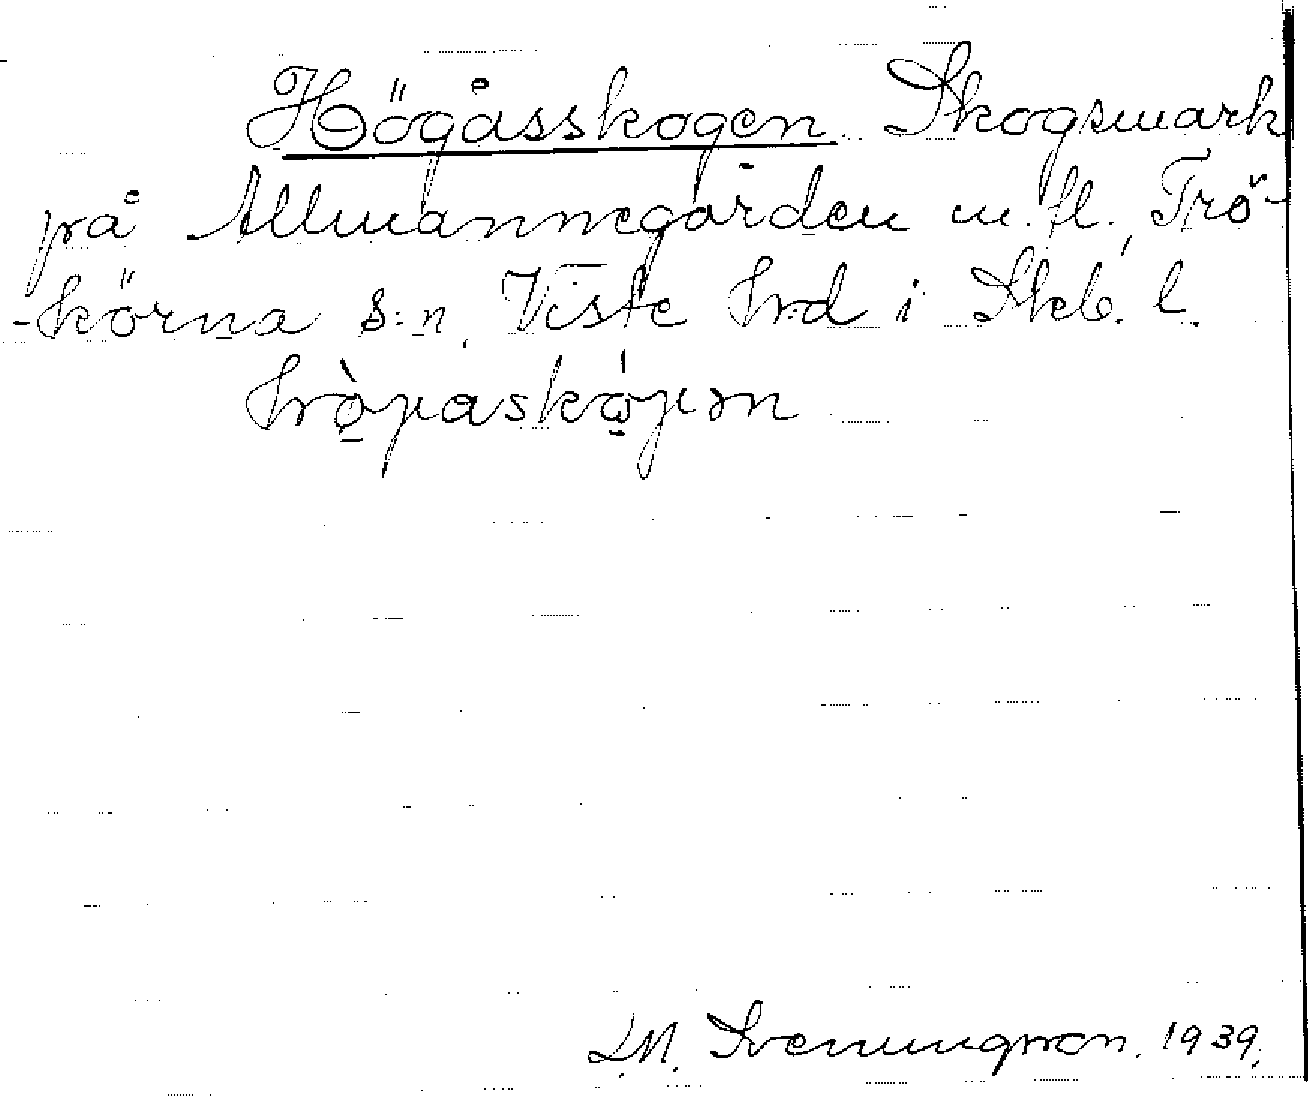 Högåsskogen. Skogsmark
på Allmannegården m. fl., Trö-
-körna s:n, Viste hrd i Skb. l.
L.M. Svenungsson. 1939.